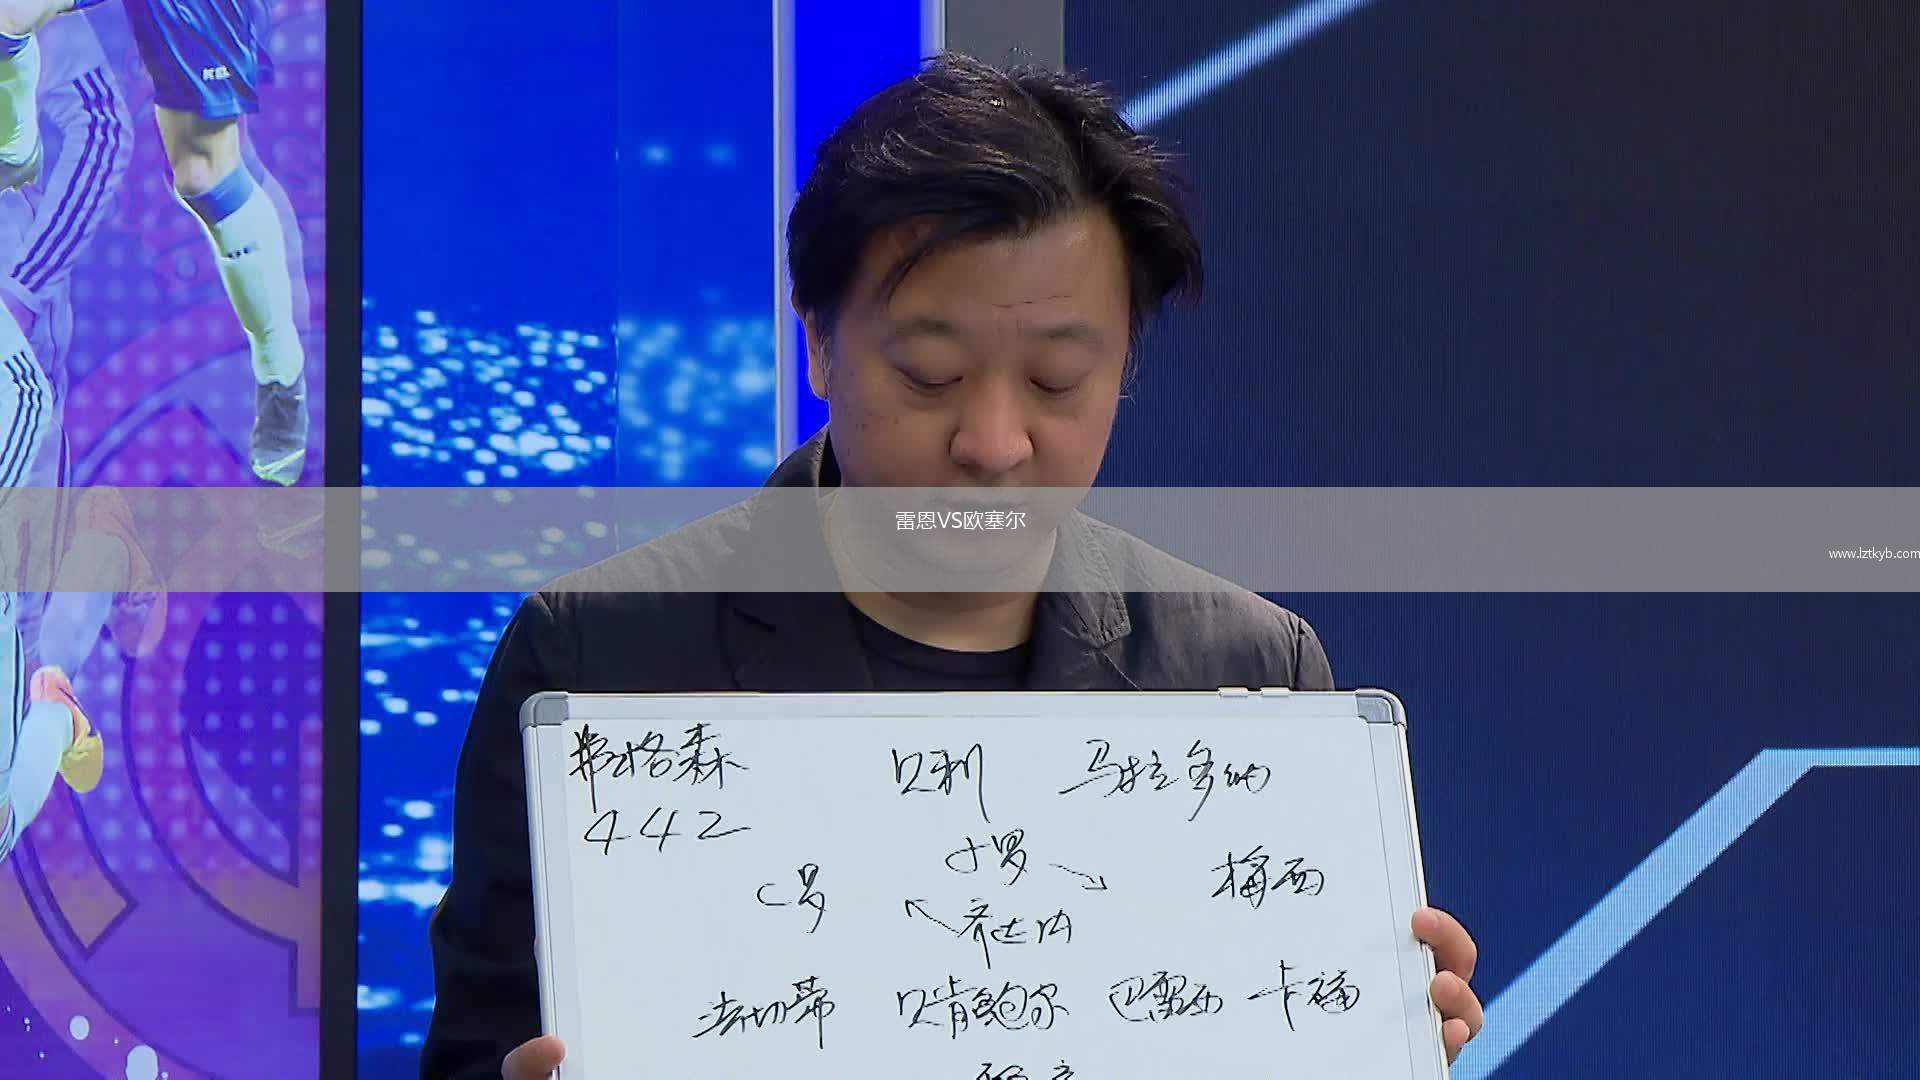 雷恩VS欧塞尔
www.lztkyb.com
弗格森 贝利 马拉多纳
442
小罗
C罗 梅西
齐达内
法切蒂 贝肯鲍尔 巴雷西 卡福